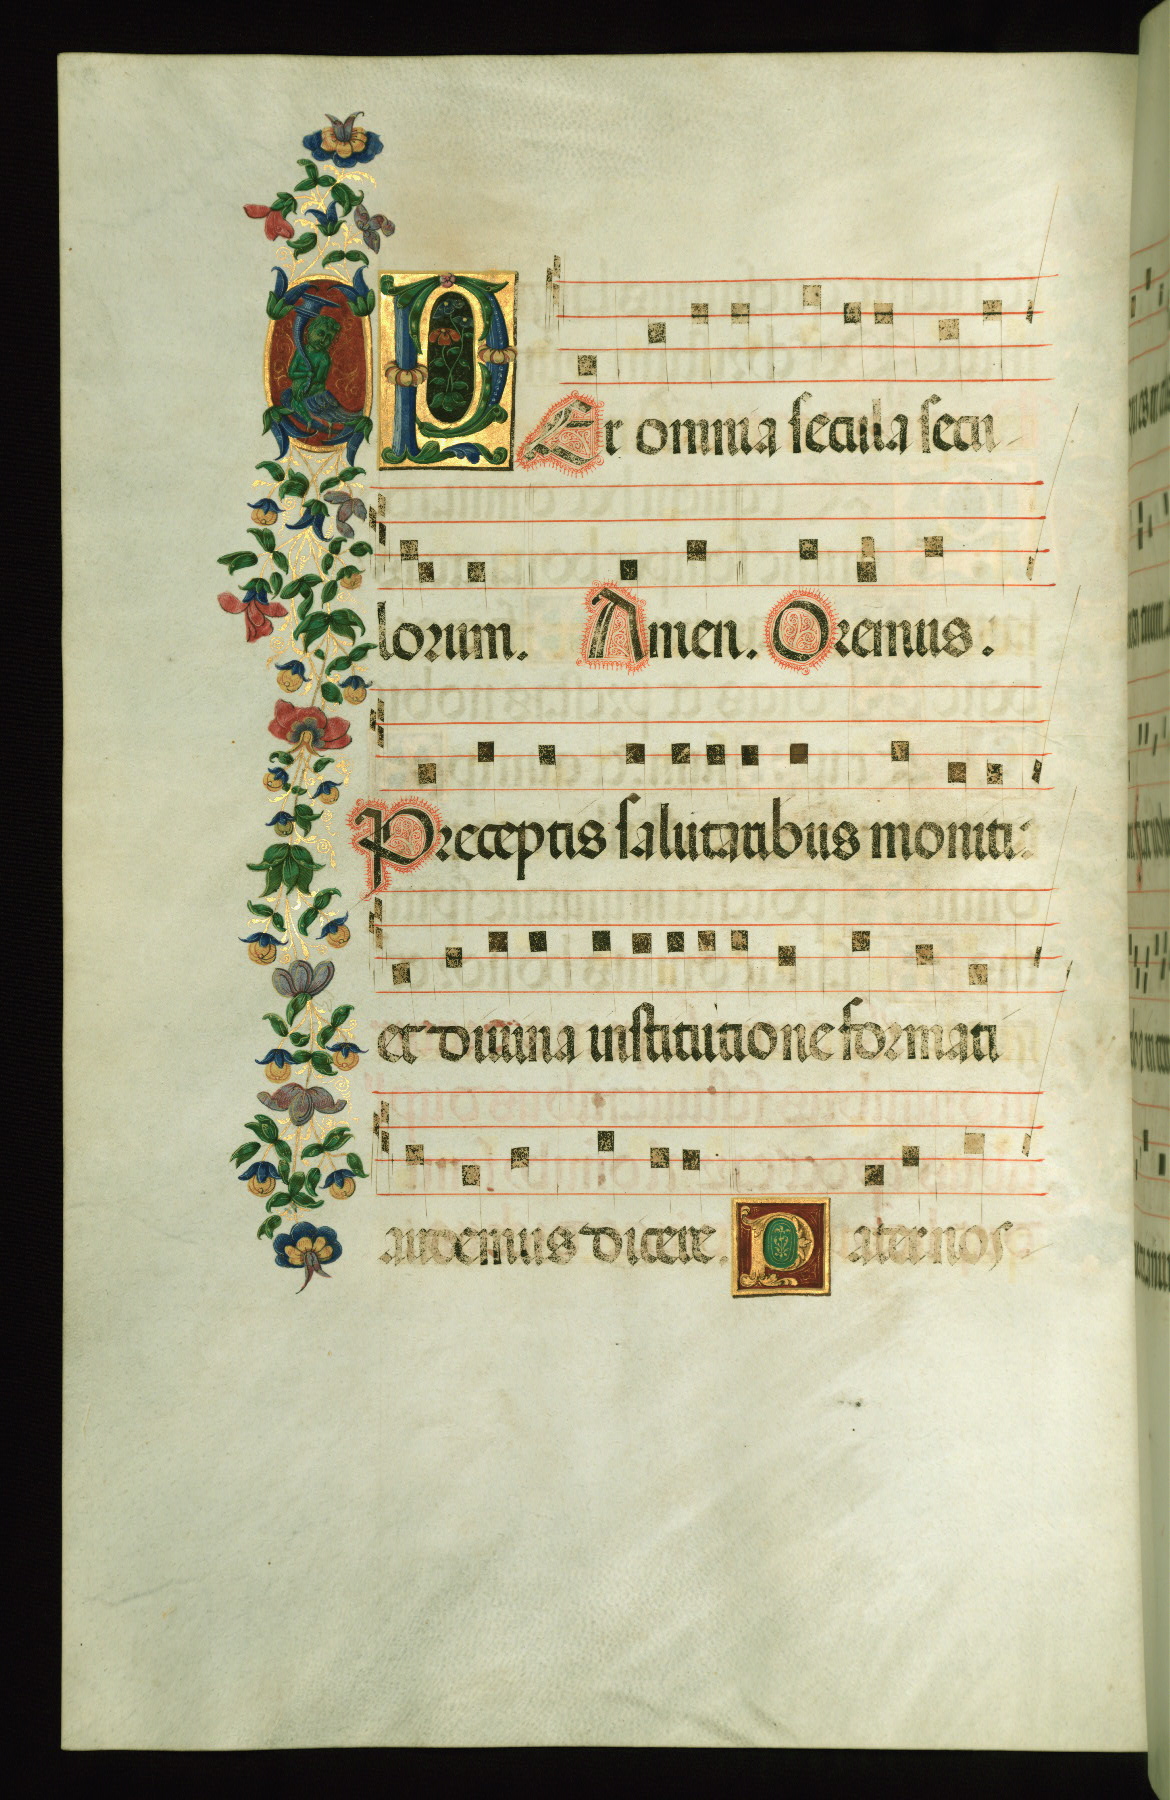 PEr omnia secula secu
lorum. Amen. Oremus.
Preceptis salutaribus moniti:
et divina institutione formati
audemus dicere. Pater nos